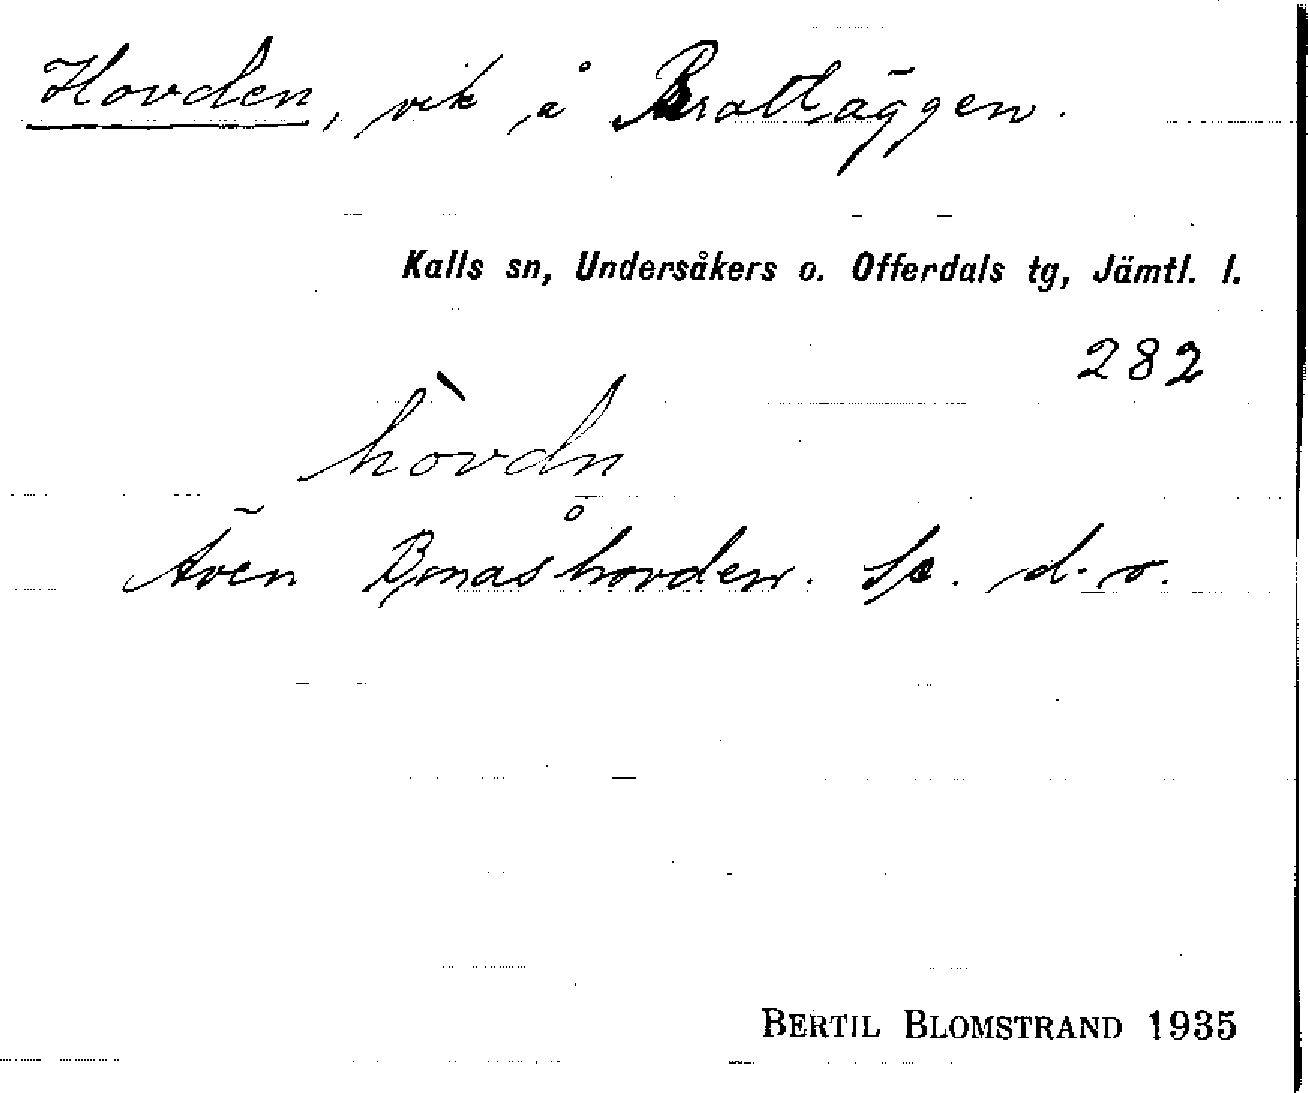 Hovden, vik å Brattäggen.
Kalls sn, Undersåkers o. Offerdals tg, Jämtl. l.
282
hòvdn
Även Bonäshovden. Se. d. o.
BERTIL BLOMSTRAND 1935